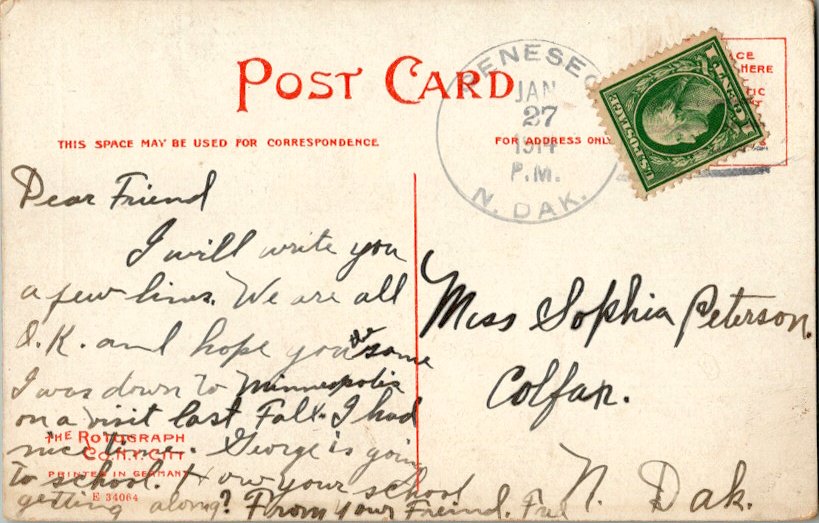 POST CARD
THIS SPACE MAY BE USED FOR CORRESPONDENCE
FOR ADDRESS ONLY
CE
HERE
TIC
GENESEO
JAN
27
1914
P.M.
N. DAK.
U.S. POSTAGE
1 CENT 1
Dear Friend
I will write you
a few lines. We are all
O.K. and hope you the same
I was down to Minneopolis
on a visit last Fall. I had
nice time. George is going
to school. How your school
getting along? From your Freind. Fred
Miss Sophia Peterson.
Colfax.
N. Dak.
THE ROTOGRAPH
CO. N.Y. CITY
PRINTED IN GERMANY
E 34064